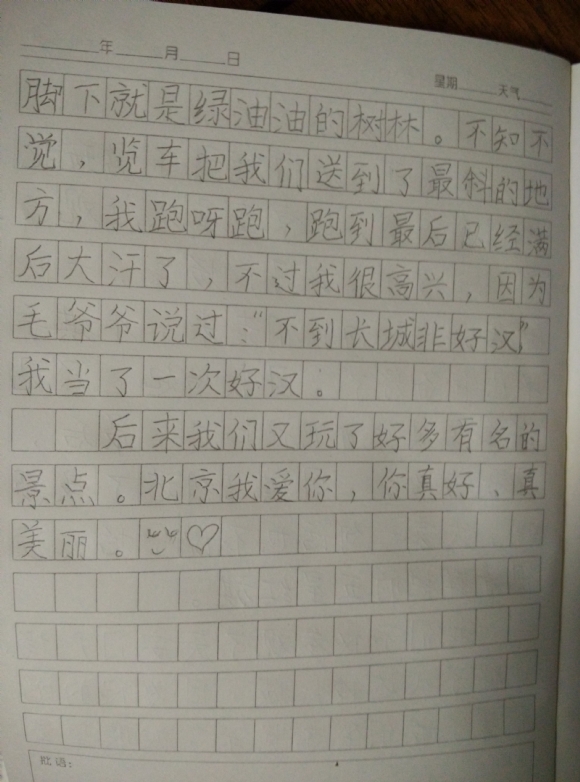 年 月 日
星期 天气
脚下就是绿油油的树林。不知不
觉，览车把我们送到了最斜的地
方，我跑呀跑，跑到最后已经满
后大汗了，不过我很高兴，因为
毛爷爷说过：“不到长城非好汉”
我当了一次好汉。
后来我们又玩了好多有名的
景点。北京我爱你，你真好、真
美丽。
批语：